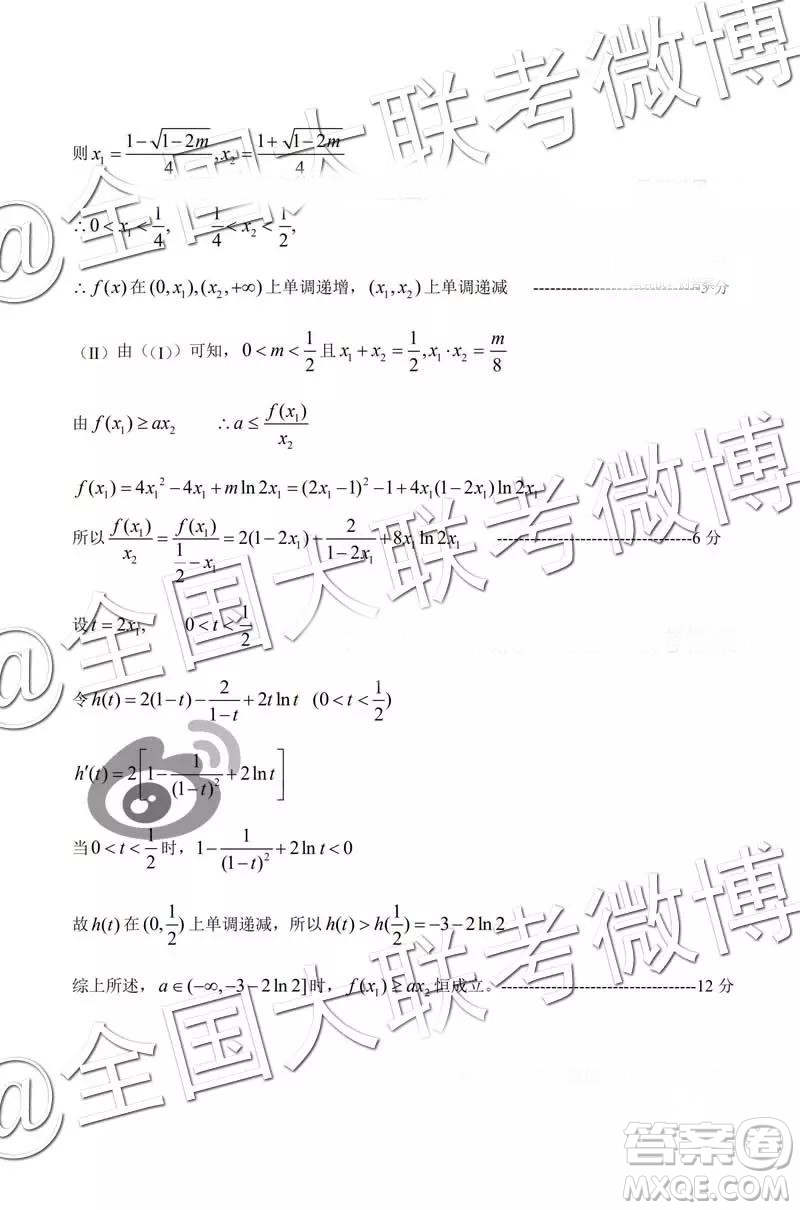 则 x₁ = (1−√(1−2m))/4, x₂ = (1+√(1−2m))/4
∴ 0 < x₁ < 1/4, 1/4 < x₂ < 1/2,
∴ f(x) 在 (0, x₁), (x₂, +∞) 上单调递增，(x₁, x₂) 上单调递减 ------------------------------5 分
（II）由（(I)）可知，0 < m < 1/2 且 x₁ + x₂ = 1/2, x₁ · x₂ = m/8
由 f(x₁) ≥ ax₂ ∴ a ≤ f(x₁)/x₂
f(x₁) = 4x₁² − 4x₁ + m ln 2x₁ = (2x₁ −1)² −1 + 4x₁(1−2x₁) ln 2x₁
所以 f(x₁)/x₂ = f(x₁)/(1/2 − x₁) = 2(1−2x₁) − 2/(1−2x₁) + 8x₁ ln 2x₁ -----------------------------------6 分
设 t = 2x₁, 0 < t < 1/2
令 h(t) = 2(1−t) − 2/(1−t) + 2t ln t (0 < t < 1/2)
h′(t) = 2[1 − 1/(1−t)² + 2 ln t]
当 0 < t < 1/2 时，1 − 1/(1−t)² + 2 ln t < 0
故 h(t) 在 (0, 1/2) 上单调递减，所以 h(t) > h(1/2) = −3 − 2 ln 2
综上所述，a ∈ (−∞, −3 − 2 ln 2] 时，f(x₁) ≥ ax₂ 恒成立。-----------------------------------12 分
@全国大联考微博
@全国大联考微博
@全国大联考微博
答案卷
MXQE.COM